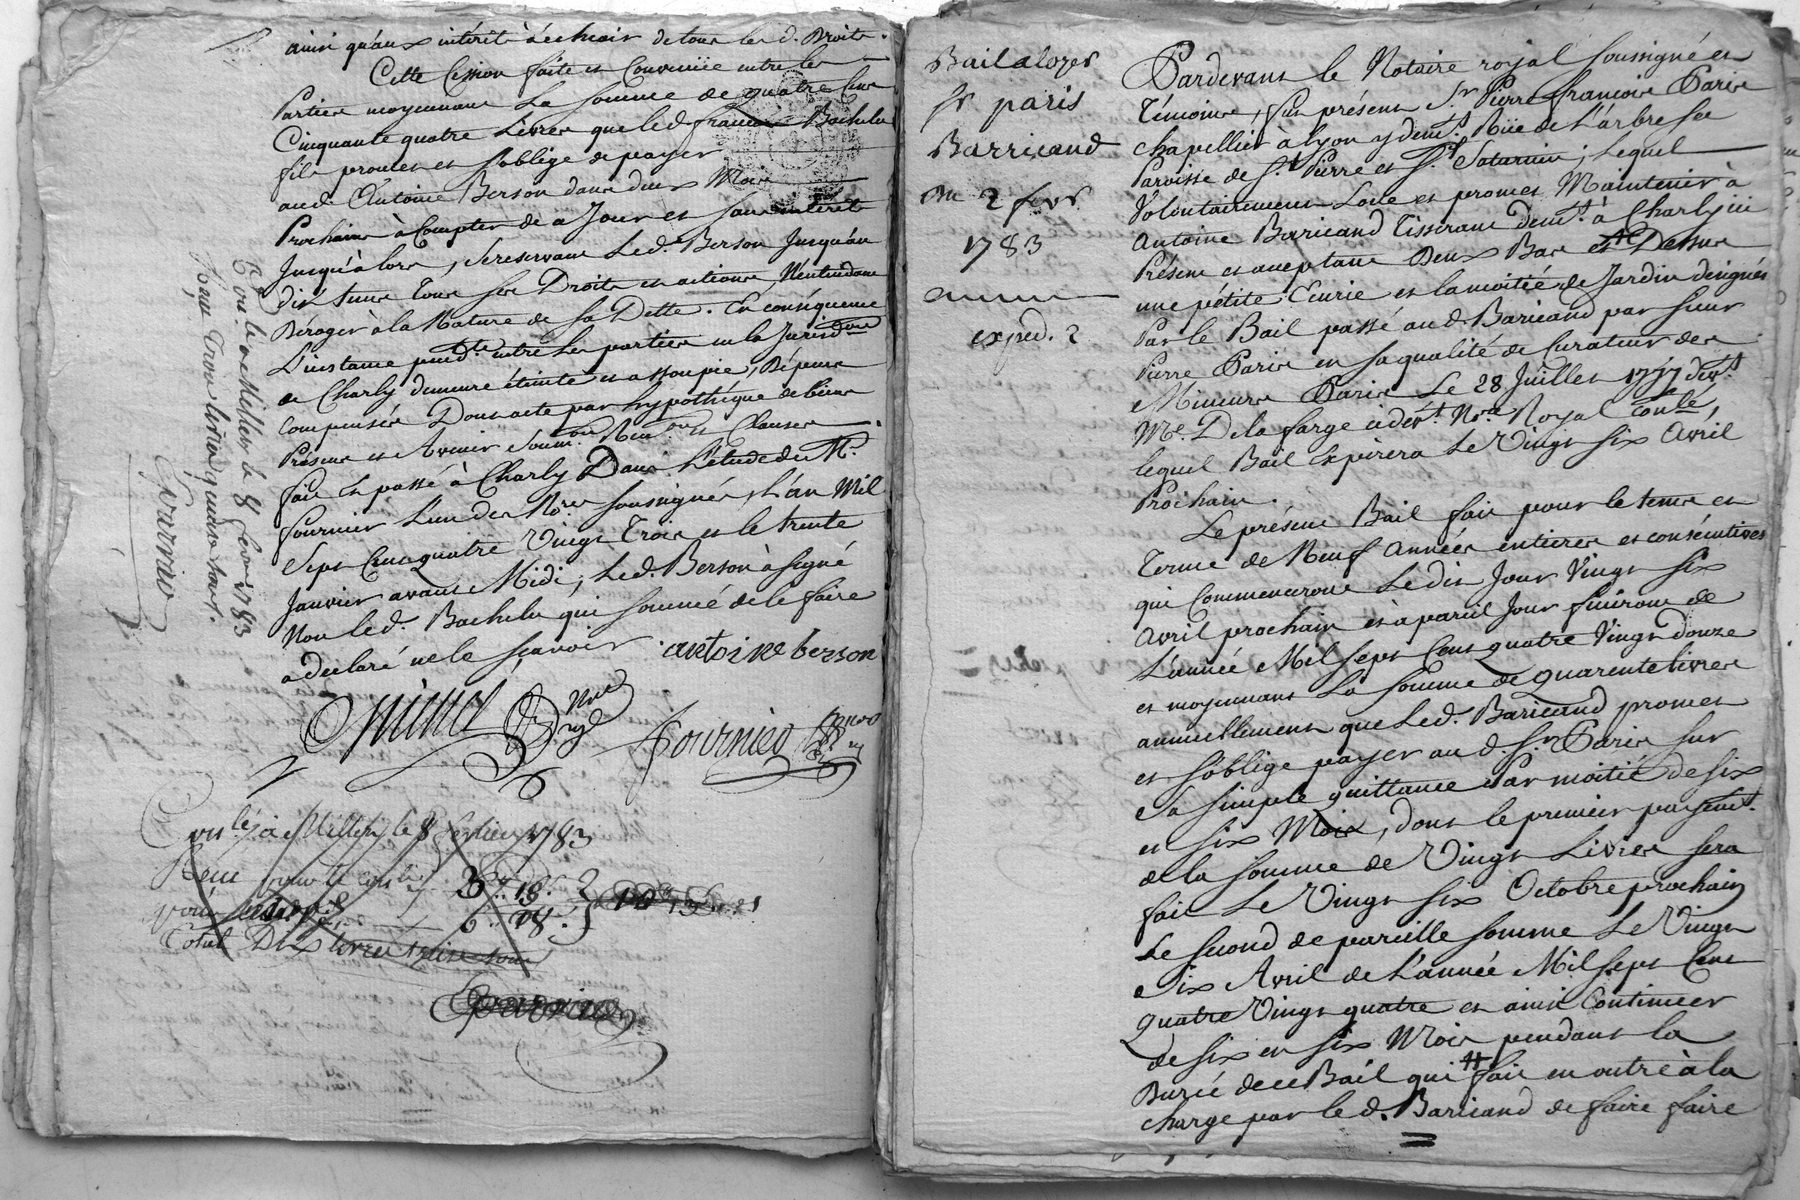 ainsi qu'aux intérêt à échoir de tous les d. Droits.
Cette Cession faite et Convenüe entre les
Parties moyennant La Somme de quatre Cent
Cinquante quatre Livres que led. françois Bachelu
fils promet et s'oblige de payer
aud. Antoine Berson dans deux Mois
Prochains à Compter de ce Jour et sans intérêt
Jusqu'à lors, se reservant Led. Berson Jusqu'au
dit tems Tous ses Droits et actions, N'entendant
Déroger à la Nature de sa Dette. En conséquence
L'instance pend.te entre Les parties en la Jurisd.on
de Charly demeure éteinte et assoupie, Dépens
compensés Dont acte par hypothéque de biens
Présens et Avenir Soum.on Ren.on et Clauses.
fait et passé à Charly Dans L'étude de M.e
fournier L'un des No.res soussignés, L'an Mil
Sept Cent quatre Vingt Trois et le trente
Janvier avant Midi; Led. Berson à signé
Non led. Bachelu qui sommé de le faire
a declaré ne le scavoir. antoine berson
fournier
Con.lé à Millery le 8 fevrier 1783
Total Dix livres treize sous
Con.lé à Millery le 8 fevrier 1783
Reçu Trois livres quinze sous.
Bail a loyer
sr paris
Barricand
du 2 fevr
1783
exped. 2
Pardevant le Notaire royal soussigné et
Témoins, fut présent S.r Pierre françois Paris
chapellier à lyon y dem.t Rüe de L'arbre sec
Paroisse de S.t Pierre et S.t Saturnin; Lequel
Volontairement Loüe et promet Maintenir à
Antoine Barricand Tisserant dem.t à Charly ici
Présent et acceptant Deux Bas et Dessus
une pétite Ecurie et la moitié de Jardin désignés
Par le Bail passé aud. Baricand par sieur
Pierre Paris en sa qualité de Curateur des
Mineurs Paris Le 28 Juillet 1777 dev.t
M.e Delafarge ci dev.t No.re Royal Con.lé,
lequel Bail Expirera Le Vingt six Avril
Prochain.
Le présent Bail fait pour le tems et
Terme de Neuf années entieres et consécutives
qui Commenceront Ledit Jour Vingt six
Avril prochain et à pareil Jour finiront de
L'année Mil sept Cent quatre Vingt douze
et moyennant La Somme de quarente livres
annuellement que Led. Baricand promet
et s'oblige payer au d. S.r Paris sur
Sa simple quittance Par moitié de six
en six Mois, dont le premier payem.t
de la somme de Vingt Livres sera
fait Le Vingt six Octobre prochain
Le second de pareille somme Le Vingt
Six Avril de L'année Mil sept Cent
quatre Vingt quatre et ainsi Continuer
de six en six Mois pendant la
Durée de ce Bail qui fait en outre à la
charge par le d. Baricand de faire faire